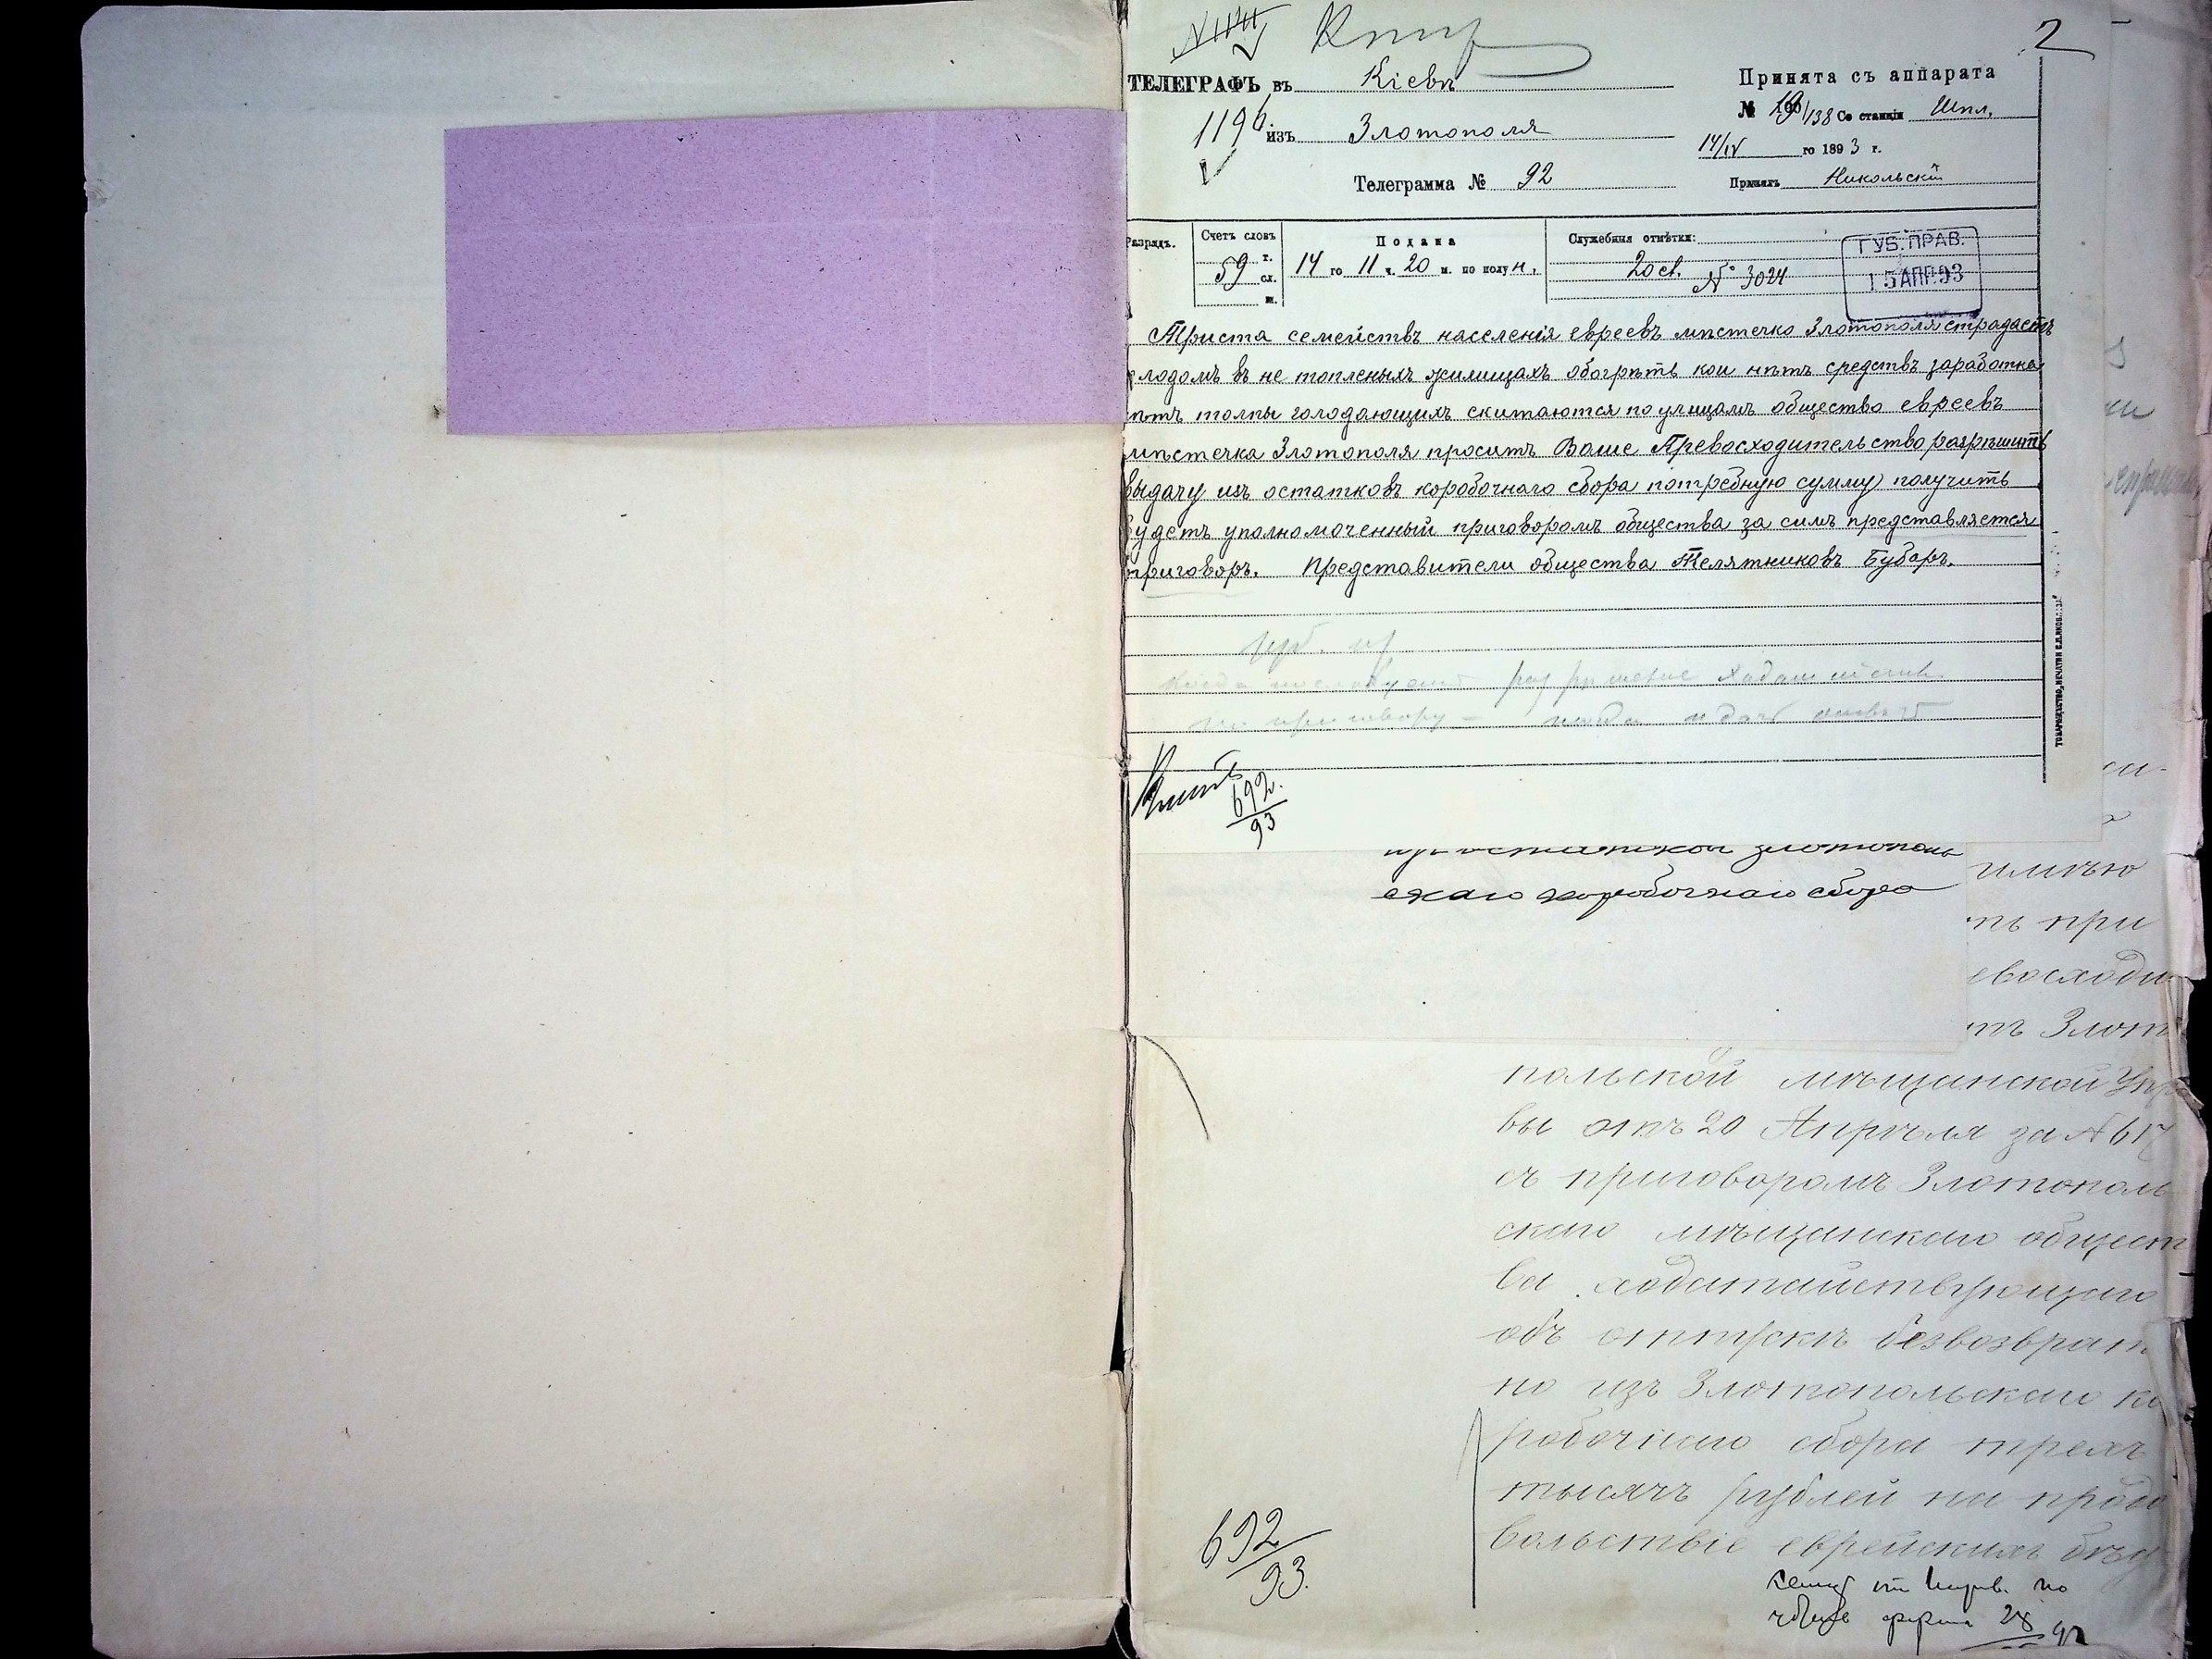 2
ТЕЛЕГРАФЪ въ Кіевъ
Принята съ аппарата
№ /138 Со станціи Шпл.
1196 изъ Злотополя
14/IV го 1893 г.
Телеграмма № 92
Принялъ Никольскій
Разрядъ.
Счетъ словъ
59 т. сл.
Подана
14 го 11 ч. 20 м. по полун.
Служебныя отмѣтки:
20 ст. № 3024
ГУБ. ПРАВ.
15 АПР. 93
Триста семействъ населенія евреевъ мѣстечко Злотополя страдаетъ
лодомъ въ не топленыхъ жилищахъ обогрѣть кои нѣтъ средствъ заработка
ѣтъ толпы голодающихъ скитаются по улицамъ общество евреевъ
мѣстечка Злотополя проситъ Ваше Превосходительство разрѣшить
выдачу изъ остатковъ коробочнаго сбора потребную сумму получить
будетъ уполномоченный приговоромъ общества за симъ представляется
приговоръ. Представители общества Телятниковъ Бубаръ.
разрѣшеніе
по приговору
692
93
ТОВАРИЩЕСТВО ПЕЧАТНИ С.П.ЯКОВЛЕВА
злотополь
скаго коробочнаго сбора
имѣю
ть при
евосходи
тъ Злот
польской мѣщанской Упра
вы отъ 20 Апрѣля за № 617
съ приговоромъ Злотополь
скаго мѣщанскаго общест
ва ходатайствующаго
объ отпускѣ безвозврат
но изъ Злотопольскаго ко
робочнаго сбора трехъ
тысячъ рублей на продо
вольствіе еврейскихъ бѣд
692
93.